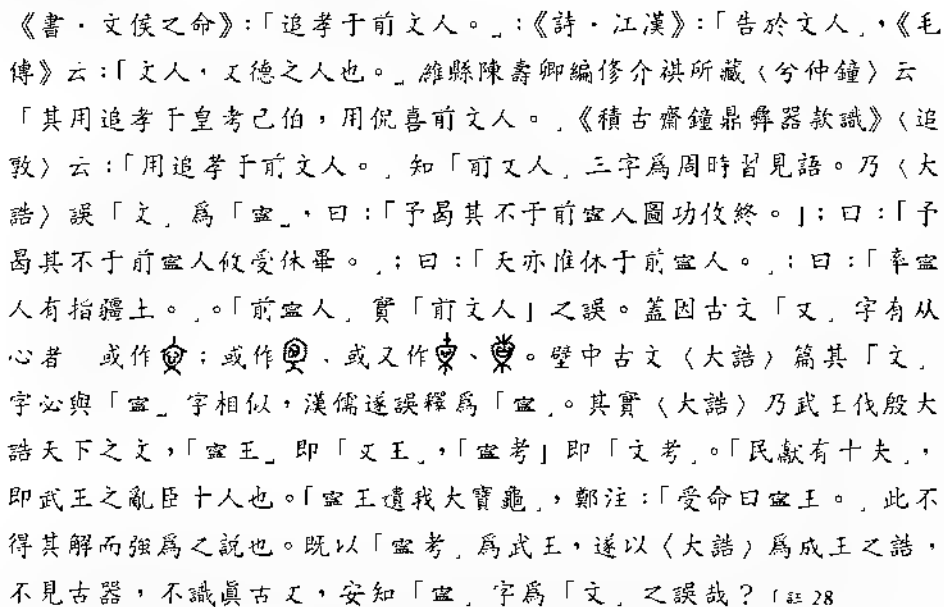 《書．文侯之命》：「追孝于前文人。」：《詩．江漢》：「告於文人」，《毛
傳》云：「文人，文德之人也。」濰縣陳壽卿編修介祺所藏〈兮仲鐘〉云
「其用追孝于皇考己伯，用侃喜前文人。」《積古齋鐘鼎彝器款識》〈追
敦〉云：「用追孝于前文人。」知「前文人」三字爲周時習見語。乃〈大
誥〉誤「文」爲「寍」，曰：「予曷其不于前寍人圖功攸終。」；曰：「予
曷其不于前寍人攸受休畢。」；曰：「天亦惟休于前寍人。」；曰：「率寍
人有指疆土。」。「前寍人」實「前文人」之誤。蓋因古文「文」字有从
心者　或作；或作、或又作、。壁中古文〈大誥〉篇其「文」
字必與「寍」字相似，漢儒遂誤釋爲「寍」。其實〈大誥〉乃武王伐殷大
誥天下之文，「寍王」即「文王」，「寍考」即「文考」。「民獻有十夫」，
即武王之亂臣十人也。「寍王遺我大寶龜」，鄭注：「受命曰寍王。」此不
得其解而強爲之說也。既以「寍考」爲武王，遂以〈大誥〉爲成王之誥，
不見古器，不識眞古文，安知「寍」字爲「文」之誤哉？「註 28